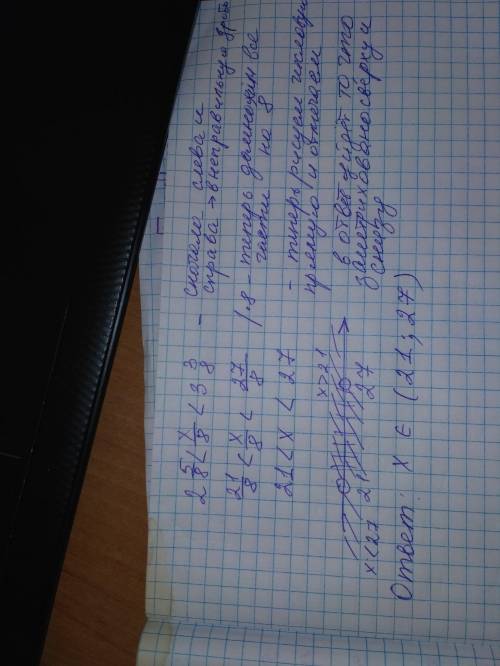 2 5/8 < x/8 < 3 3/8 - сначало слева и
справа → в неправильную дробь
21/8 < x/8 < 27/8 /·8 - теперь домножим все
части на 8
21 < x < 27 - теперь рисуем числовую
прямую и отмечаем
x > 21
21 27
x < 27
в ответ уйдёт то что
заштриховано сверху и
снизу
Ответ: x ∈ (21; 27)